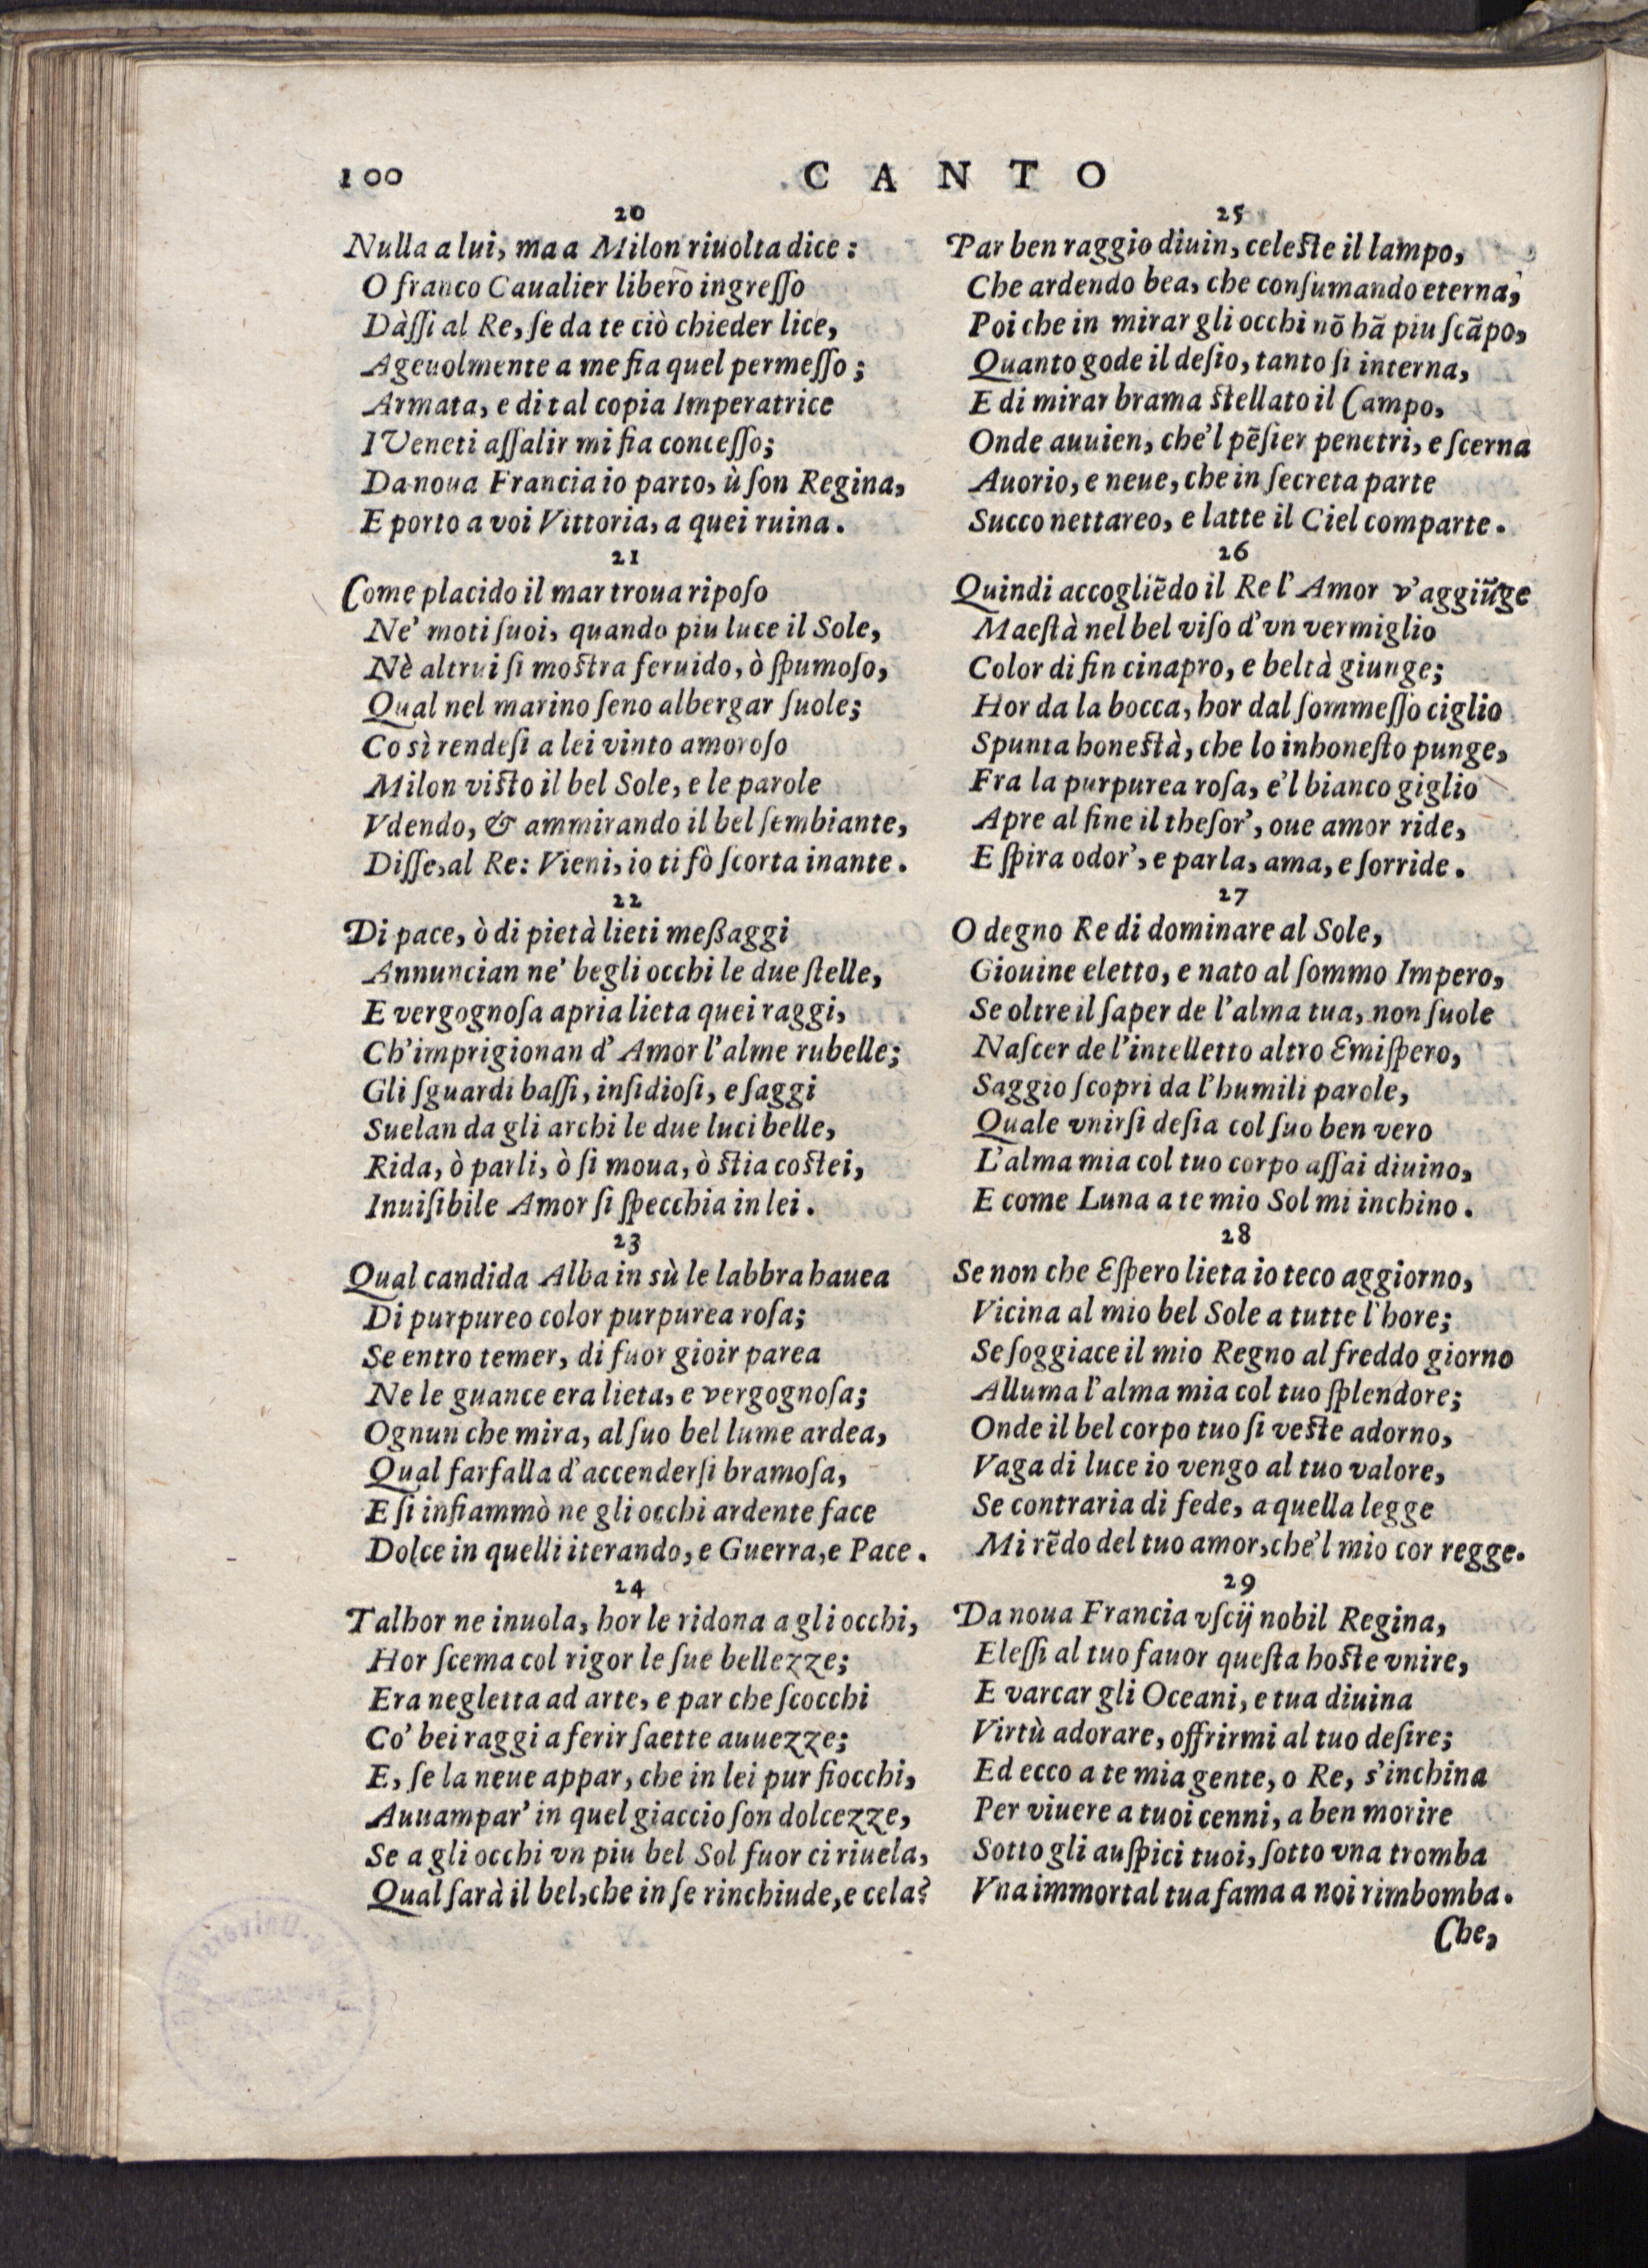 100
CANTO
20
Nulla a lui, ma a Milon riuolta dice:
O franco Caualier libero ingreſſo
Dàſſi al Re, ſe da te ciò chieder lice,
Ageuolmente a me fia quel permeſſo;
Armata, e di tal copia Imperatrice
I Veneti aſſalir mi fia conceſſo;
Da noua Francia io parto, ù ſon Regina,
E porto a voi Vittoria, a quei ruina.
21
Come placido il mar troua ripoſo
Ne' moti ſuoi, quando piu luce il Sole,
Nè altrui ſi moſtra feruido, ò ſpumoſo,
Qual nel marino ſeno albergar ſuole;
Co sì rendeſi a lei vinto amoroſo
Milon viſto il bel Sole, e le parole
Vdendo, & ammirando il bel ſembiante,
Diſſe, al Re: Vieni, io ti fò ſcorta inante.
22
Di pace, ò di pietà lieti meßaggi
Annuncian ne' begli occhi le due ſtelle,
E vergognoſa apria lieta quei raggi,
Ch'imprigionan d'Amor l'alme rubelle;
Gli ſguardi baſſi, inſidioſi, e ſaggi
Suelan da gli archi le due luci belle,
Rida, ò parli, ò ſi moua, ò ſtia coſtei,
Inuiſibile Amor ſi ſpecchia in lei.
23
Qual candida Alba in sù le labbra hauea
Di purpureo color purpurea roſa;
Se entro temer, di fuor gioir parea
Ne le guance era lieta, e vergognoſa;
Ognun che mira, al ſuo bel lume ardea,
Qual farfalla d'accenderſi bramoſa,
E ſi infiammò ne gli occhi ardente face
Dolce in quelli iterando, e Guerra, e Pace.
24
Talhor ne inuola, hor le ridona a gli occhi,
Hor ſcema col rigor le ſue bellezze;
Era negletta ad arte, e par che ſcocchi
Co' bei raggi a ferir ſaette auuezze;
E, ſe la neue appar, che in lei pur fiocchi,
Auuampar' in quel giaccio ſon dolcezze,
Se a gli occhi vn piu bel Sol fuor ci riuela,
Qual ſarà il bel, che in ſe rinchiude, e cela?
25
Par ben raggio diuin, celeſte il lampo,
Che ardendo bea, che conſumando eterna,
Poi che in mirar gli occhi nõ hã piu ſcãpo,
Quanto gode il deſio, tanto ſi interna,
E di mirar brama ſtellato il Campo,
Onde auuien, che'l pẽſier penetri, e ſcerna
Auorio, e neue, che in ſecreta parte
Succo nettareo, e latte il Ciel comparte.
26
Quindi accogliẽdo il Re l'Amor v'aggiũge
Maeſtà nel bel viſo d'vn vermiglio
Color di fin cinapro, e beltà giunge;
Hor da la bocca, hor dal ſommeſſo ciglio
Spunta honeſtà, che lo inhoneſto punge,
Fra la purpurea roſa, e'l bianco giglio
Apre al fine il theſor', oue amor ride,
E ſpira odor', e parla, ama, e ſorride.
27
O degno Re di dominare al Sole,
Giouine eletto, e nato al ſommo Impero,
Se oltre il ſaper de l'alma tua, non ſuole
Naſcer de l'intelletto altro Emiſpero,
Saggio ſcopri da l'humili parole,
Quale vnirſi deſia col ſuo ben vero
L'alma mia col tuo corpo aſſai diuino,
E come Luna a te mio Sol mi inchino.
28
Se non che Eſpero lieta io teco aggiorno,
Vicina al mio bel Sole a tutte l'hore;
Se ſoggiace il mio Regno al freddo giorno
Alluma l'alma mia col tuo ſplendore;
Onde il bel corpo tuo ſi veſte adorno,
Vaga di luce io vengo al tuo valore,
Se contraria di fede, a quella legge
Mi rẽdo del tuo amor, che'l mio cor regge.
29
Da noua Francia vſcij nobil Regina,
Eleſſi al tuo fauor queſta hoſte vnire,
E varcar gli Oceani, e tua diuina
Virtù adorare, offrirmi al tuo deſire;
Ed ecco a te mia gente, o Re, s'inchina
Per viuere a tuoi cenni, a ben morire
Sotto gli auſpici tuoi, ſotto vna tromba
Vna immortal tua fama a noi rimbomba.
Che,